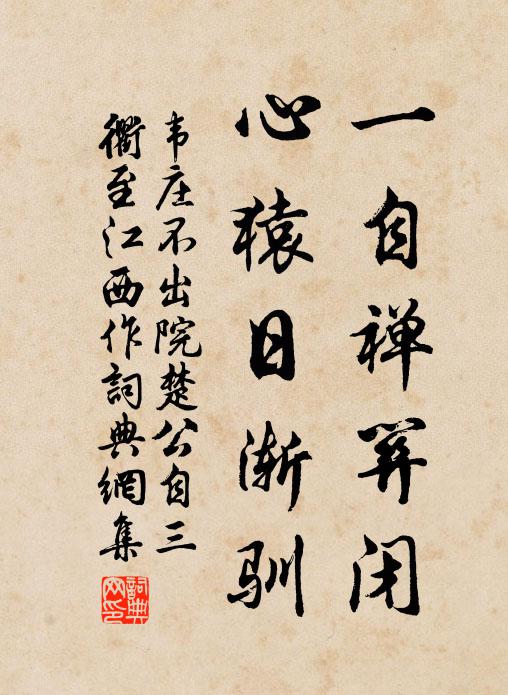 一自禅关闭
心猿日渐驯
韦庄不出院楚公自三
衢至江西作詞典網集
詞典网印